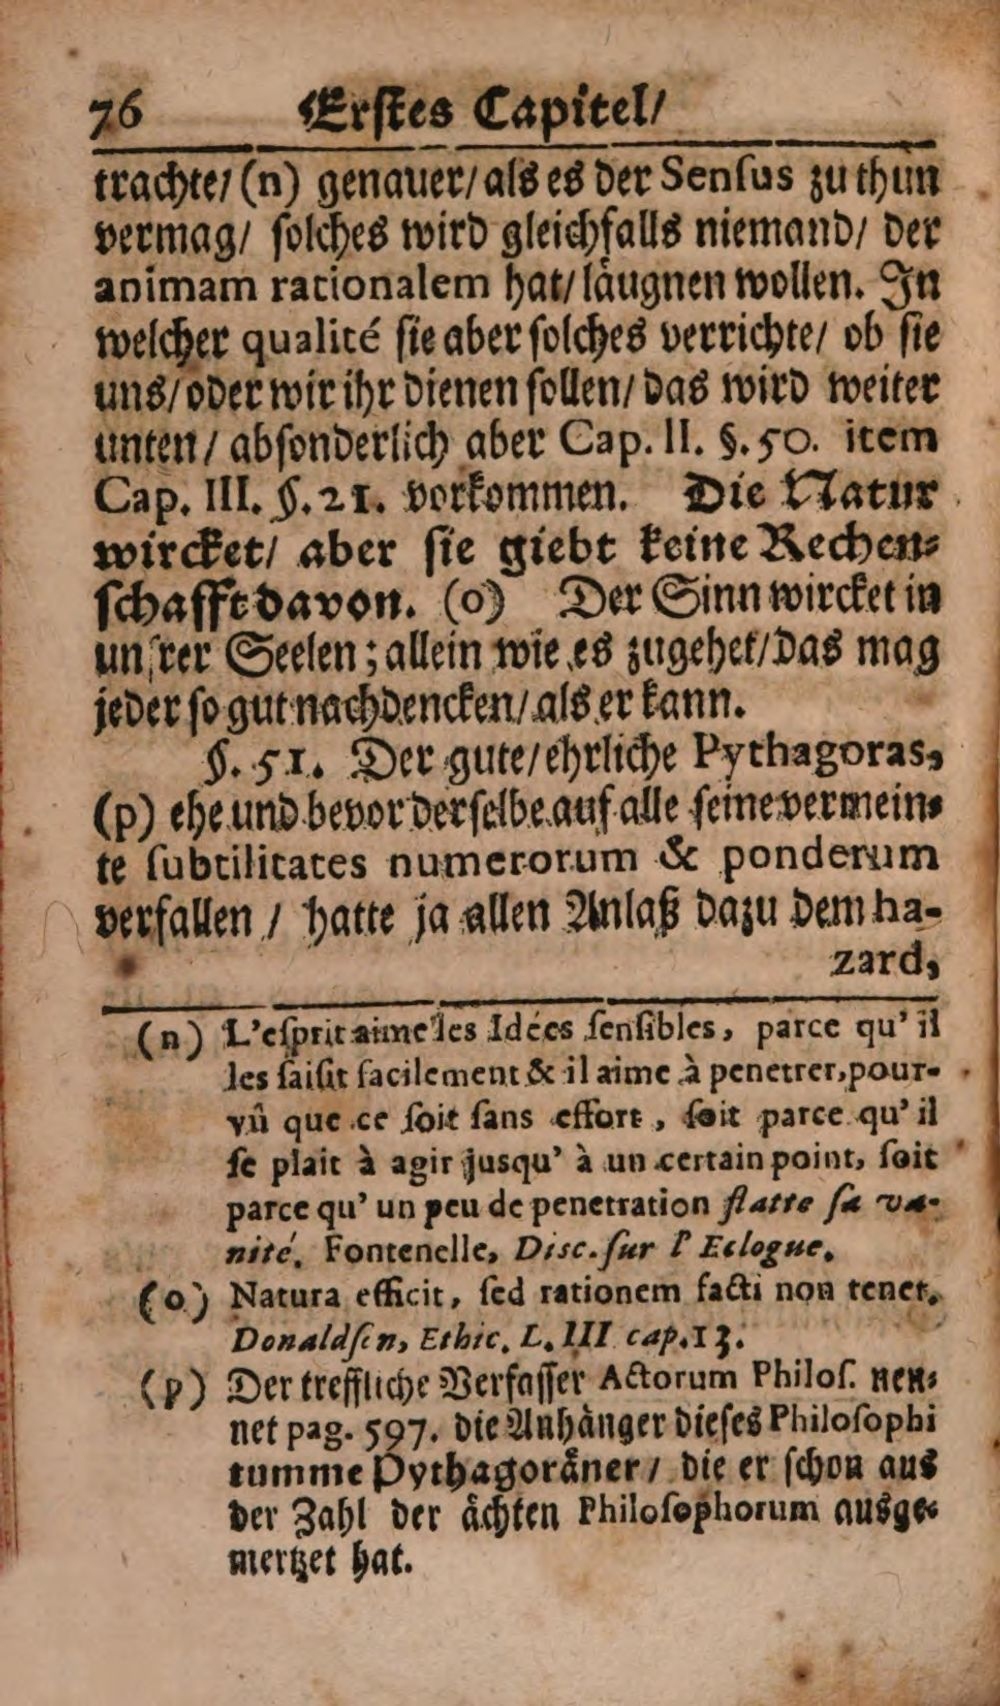 76 Erstes Capitel/
trachte/ (n) genauer/ als es der Sensus zu thun
vermag/ solches wird gleichfalls niemand/ der
animam rationalem hat/ läugnen wollen. In
welcher qualité sie aber solches verrichte/ ob sie
uns/ oder wir ihr dienen sollen/ das wird weiter
unten/ absonderlich aber Cap. II. §. 50. item
Cap. III. §. 21. vorkommen. Die Natur
wircket/ aber sie giebt keine Rechen-
schafft davon. (o) Der Sinn wircket in
unsrer Seelen; allein wie es zugehet/ das mag
jeder so gut nachdencken/ als er kann.
§. 51. Der gute/ ehrliche Pythagoras,
(p) ehe und bevor derselbe auf alle seine vermein-
te subtilitates numerorum & ponderum
verfallen / hatte ja allen Anlaß dazu dem ha-
zard,
(n) L'esprit aime les Idées sensibles, parce qu' il
les saisit facilement & il aime à penetrer, pour-
vû que ce soit sans effort, soit parce qu' il
se plait à agir jusqu' à un certain point, soit
parce qu' un peu de penetration flatte sa va-
nité. Fontenelle, Disc. sur l' Eclogue.
(o) Natura efficit, sed rationem facti non tenet.
Donaldsen, Ethic. L. III cap. 13.
(p) Der treffliche Verfasser Actorum Philos. nen-
net pag. 597. die Anhänger dieses Philosophi
tumme Pythagoräner/ die er schon aus
der Zahl der ächten Philosophorum ausge-
mertzet hat.